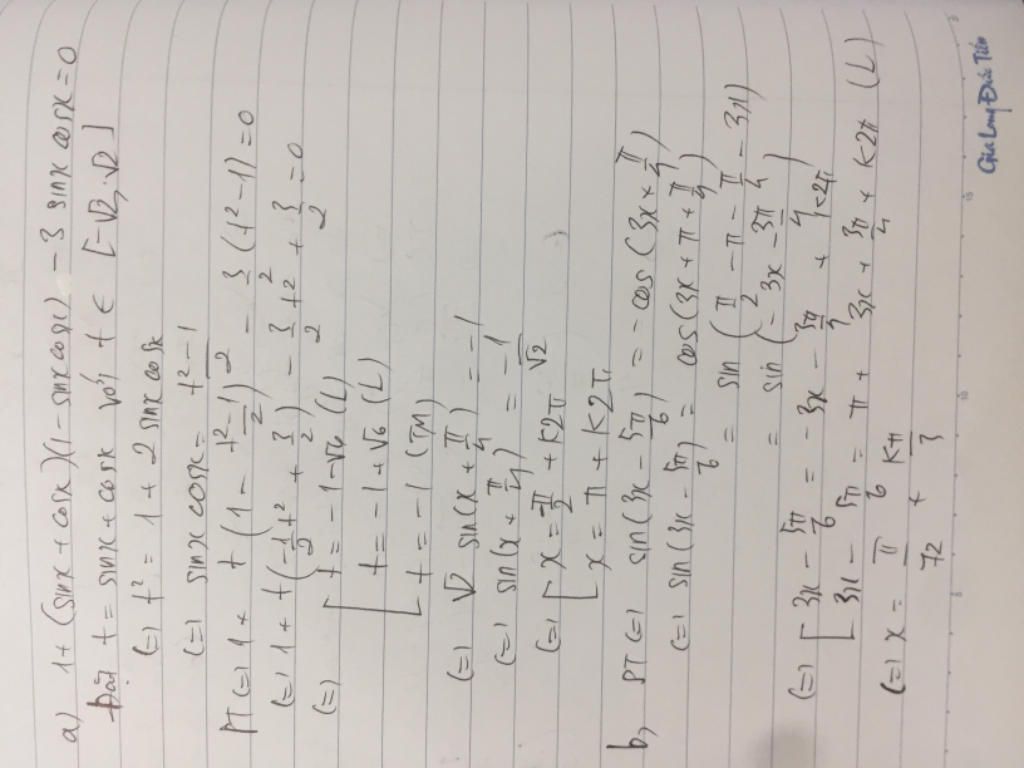 a) 1 + (sinx + cosx)(1 - sinxcosx) - 3 sinx cosx = 0
Đặt t = sinx + cosx với t ∈ [-√2; √2]
(=) t² = 1 + 2 sinx cosx
(=) sinx cosx = t²-1/2
PT (=) 1 + t(1 - t²-1/2) - 3/2(t²-1) = 0
(=) 1 + t(-1/2t² + 3/2) - 3/2t² + 3/2 = 0
(=) [t = -1-√6 (L)
t = -1+√6 (L)
t = -1 (TM)
(=) √2 sin(x + π/4) = -1
(=) sin(x + π/4) = -1/√2
(=) [x = -π/2 + k2π
x = π + k2π
b, PT (=) sin(3x - 5π/6) = -cos(3x + π/4)
(=) sin(3x - 5π/6) = cos(3x + π + π/4)
= sin(π/2 - π - π/4 - 3x)
= sin(-3x - 3π/4)
(=) [3x - 5π/6 = -3x - 3π/4 + k2π
3x - 5π/6 = π + 3x + 3π/4 + k2π (L)
(=) x = π/72 + kπ/3
Gia Long Đức Tiến